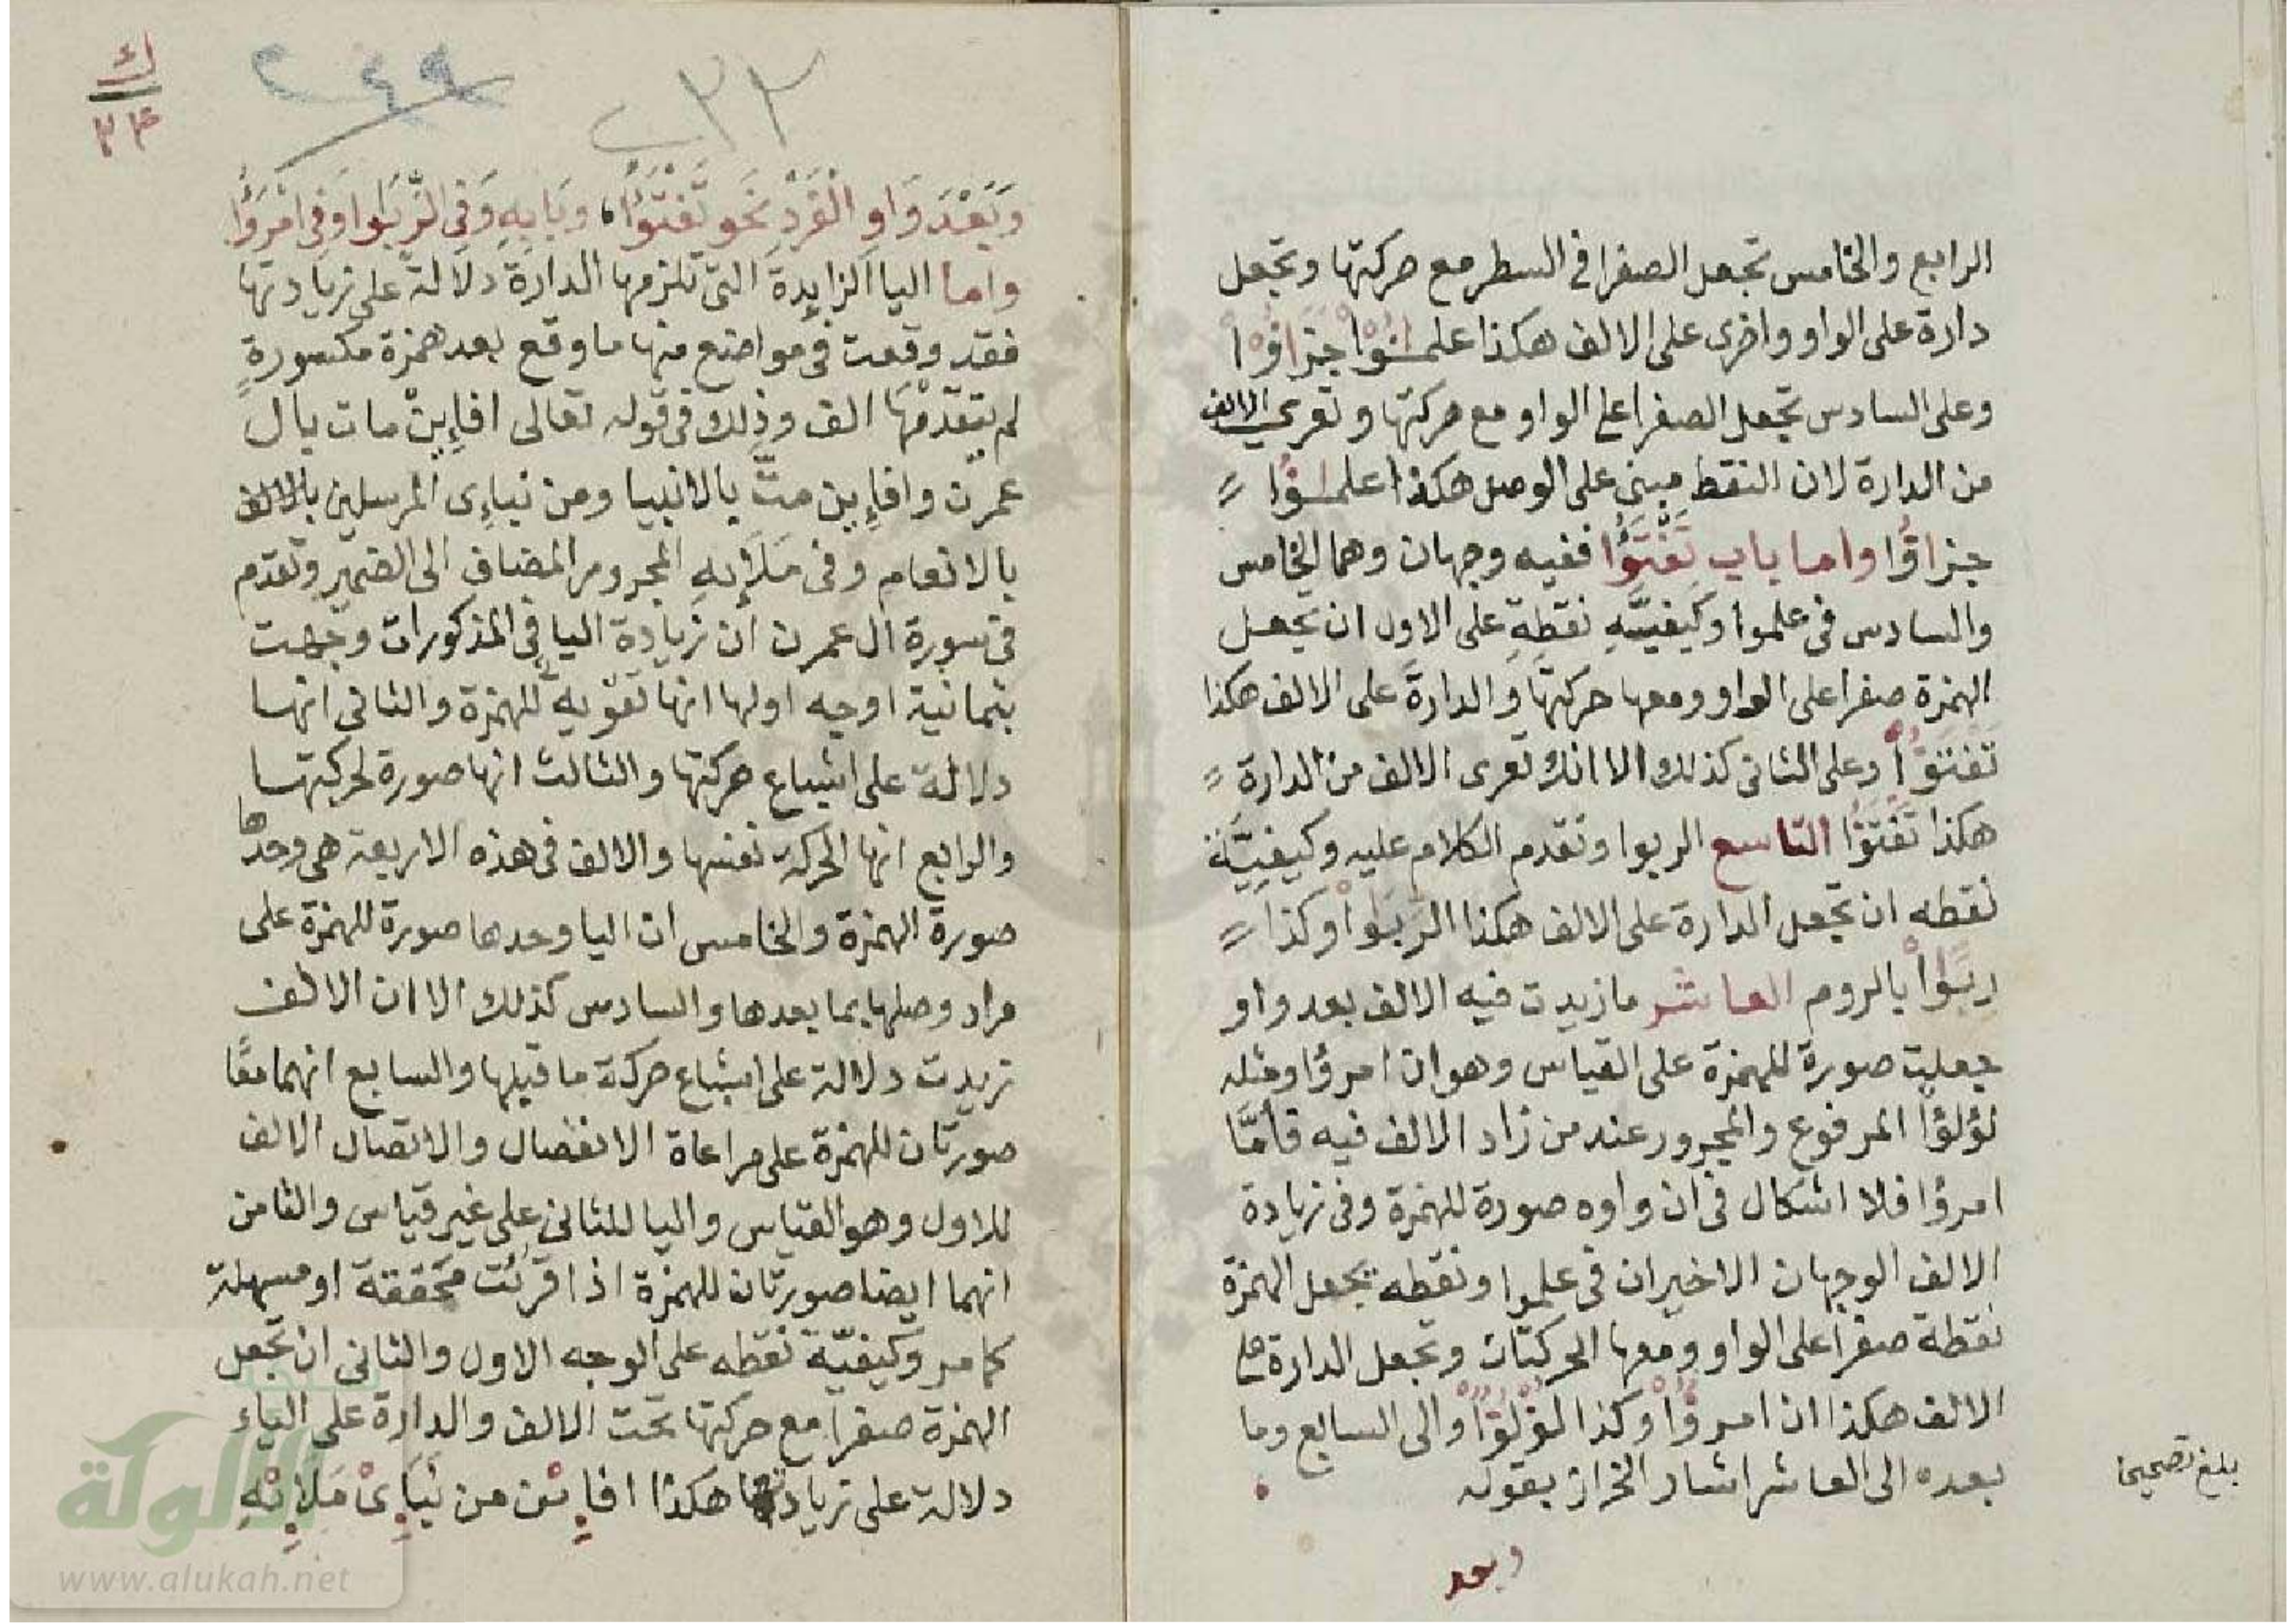 الرابع والخامس تجعل الصفرا فى السطر مع حركتها وتجعل
دارة على الواو واخرى على الالف هكذا علمـٰؤا جزاؤا
وعلى السادس تجعل الصفرا على الواو مع حركتها وتعرى الالف
من الدارة لان النقط مبنى على الوصل هكذا علمـٰؤا
جزاؤا واما باب تَفْتَؤُا ففيه وجهان وهما الخامس
والسادس فى علموا وكيفيّه نقطه على الاول ان يجعل
الهمزة صفرا على الواو ومعها حركتها والدارة على الالف هكذا
تفتؤا وعلى الثانى كذلك الا انك تعرى الالف من الدارة
هكذا تفتؤا التاسع الربوا وتقدم الكلام عليه وكيفيّة
نقطه ان تجعل الدارة على الالف هكذا الرّبوا وكذا
ربوا بالروم العاشر ما زيدت فيه الالف بعد واو
جعلت صورة للهمزة على القياس وهو ان امرؤا ومثله
لؤلؤا المرفوع والمجرور عند من زاد الالف فيه فامّا
امرؤا فلا اشكال فى ان واوه صورة للهمزة وفى زيادة
الالف الوجهان الاخيران فى علموا ونقطه يجعل الهمزة
نقطة صفرا على الواو ومعها الحركتان وتجعل الدارة على
الالف هكذا ان امرؤا وكذا لؤلؤا والى السابع وما
بعده الى العاشر اشار الخراز بقوله
بلغ تصحيحا
وبعد
٢٣٢
٢٤٩
ك
٢٤
وَبَعْدَ وَاوِ الْفَرْدِ نَحو تَفْتَؤُا، وَبَابِهِ وَفِى الرِّبَوا وَفِى امْرَؤُا
واما اليا الزايدة التى تلزمها الدارة دلالة على زيادتها
فقد وقعت فى مواضع منها ما وقع بعد همزة مكسورة
لم يتقدمها الف وذلك فى قوله تعالى افإين مات بال
عمرن وافإين متّ بالانبيا ومن نباءى المرسلين بالالف
بالانعام وفى مَلَإيهِ المجرور المضاف الى الضمير وتقدم
فى سورة ال عمرن ان زيادة اليا فى المذكورات وجهت
بثمانية اوجه اولها انها تقوية للهمزة والثانى انها
دلالة على اشباع حركتها والثالث انها صورة لحركتها
والرابع انها الحركة نفسها والالف فى هذه الاربعة هى وحدها
صورة الهمزة والخامس ان اليا وحدها صورة للهمزة على
مراد وصلها بما بعدها والسادس كذلك الا ان الالف
زيدت دلالة على اشباع حركة ما قبلها والسابع انهما معًا
صورتان للهمزة على مراعاة الانفصال والاتصال الالف
للاول وهو القياس واليا للثانى على غير قياس والثامن
انهما ايضا صورتان للهمزة اذا قرئت محققة او مسهلة
كما مر وكيفيّة نقطه على الوجه الاول والثانى ان تجعل
الهمزة صفرا مع حركتها تحت الالف والدارة على الياء
دلالة على زيادتها هكذا افإين من نبإى مَلَإيهِ
الألوكة
www.alukah.net